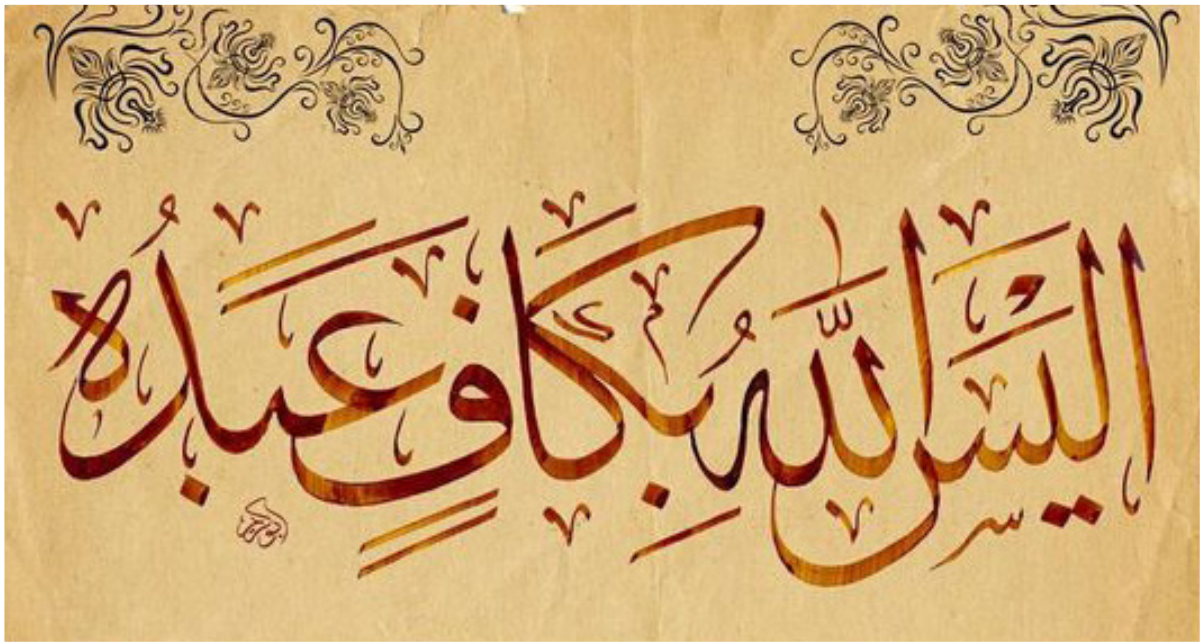 اليس اللهُ بِكافٍ عَبدَهُ